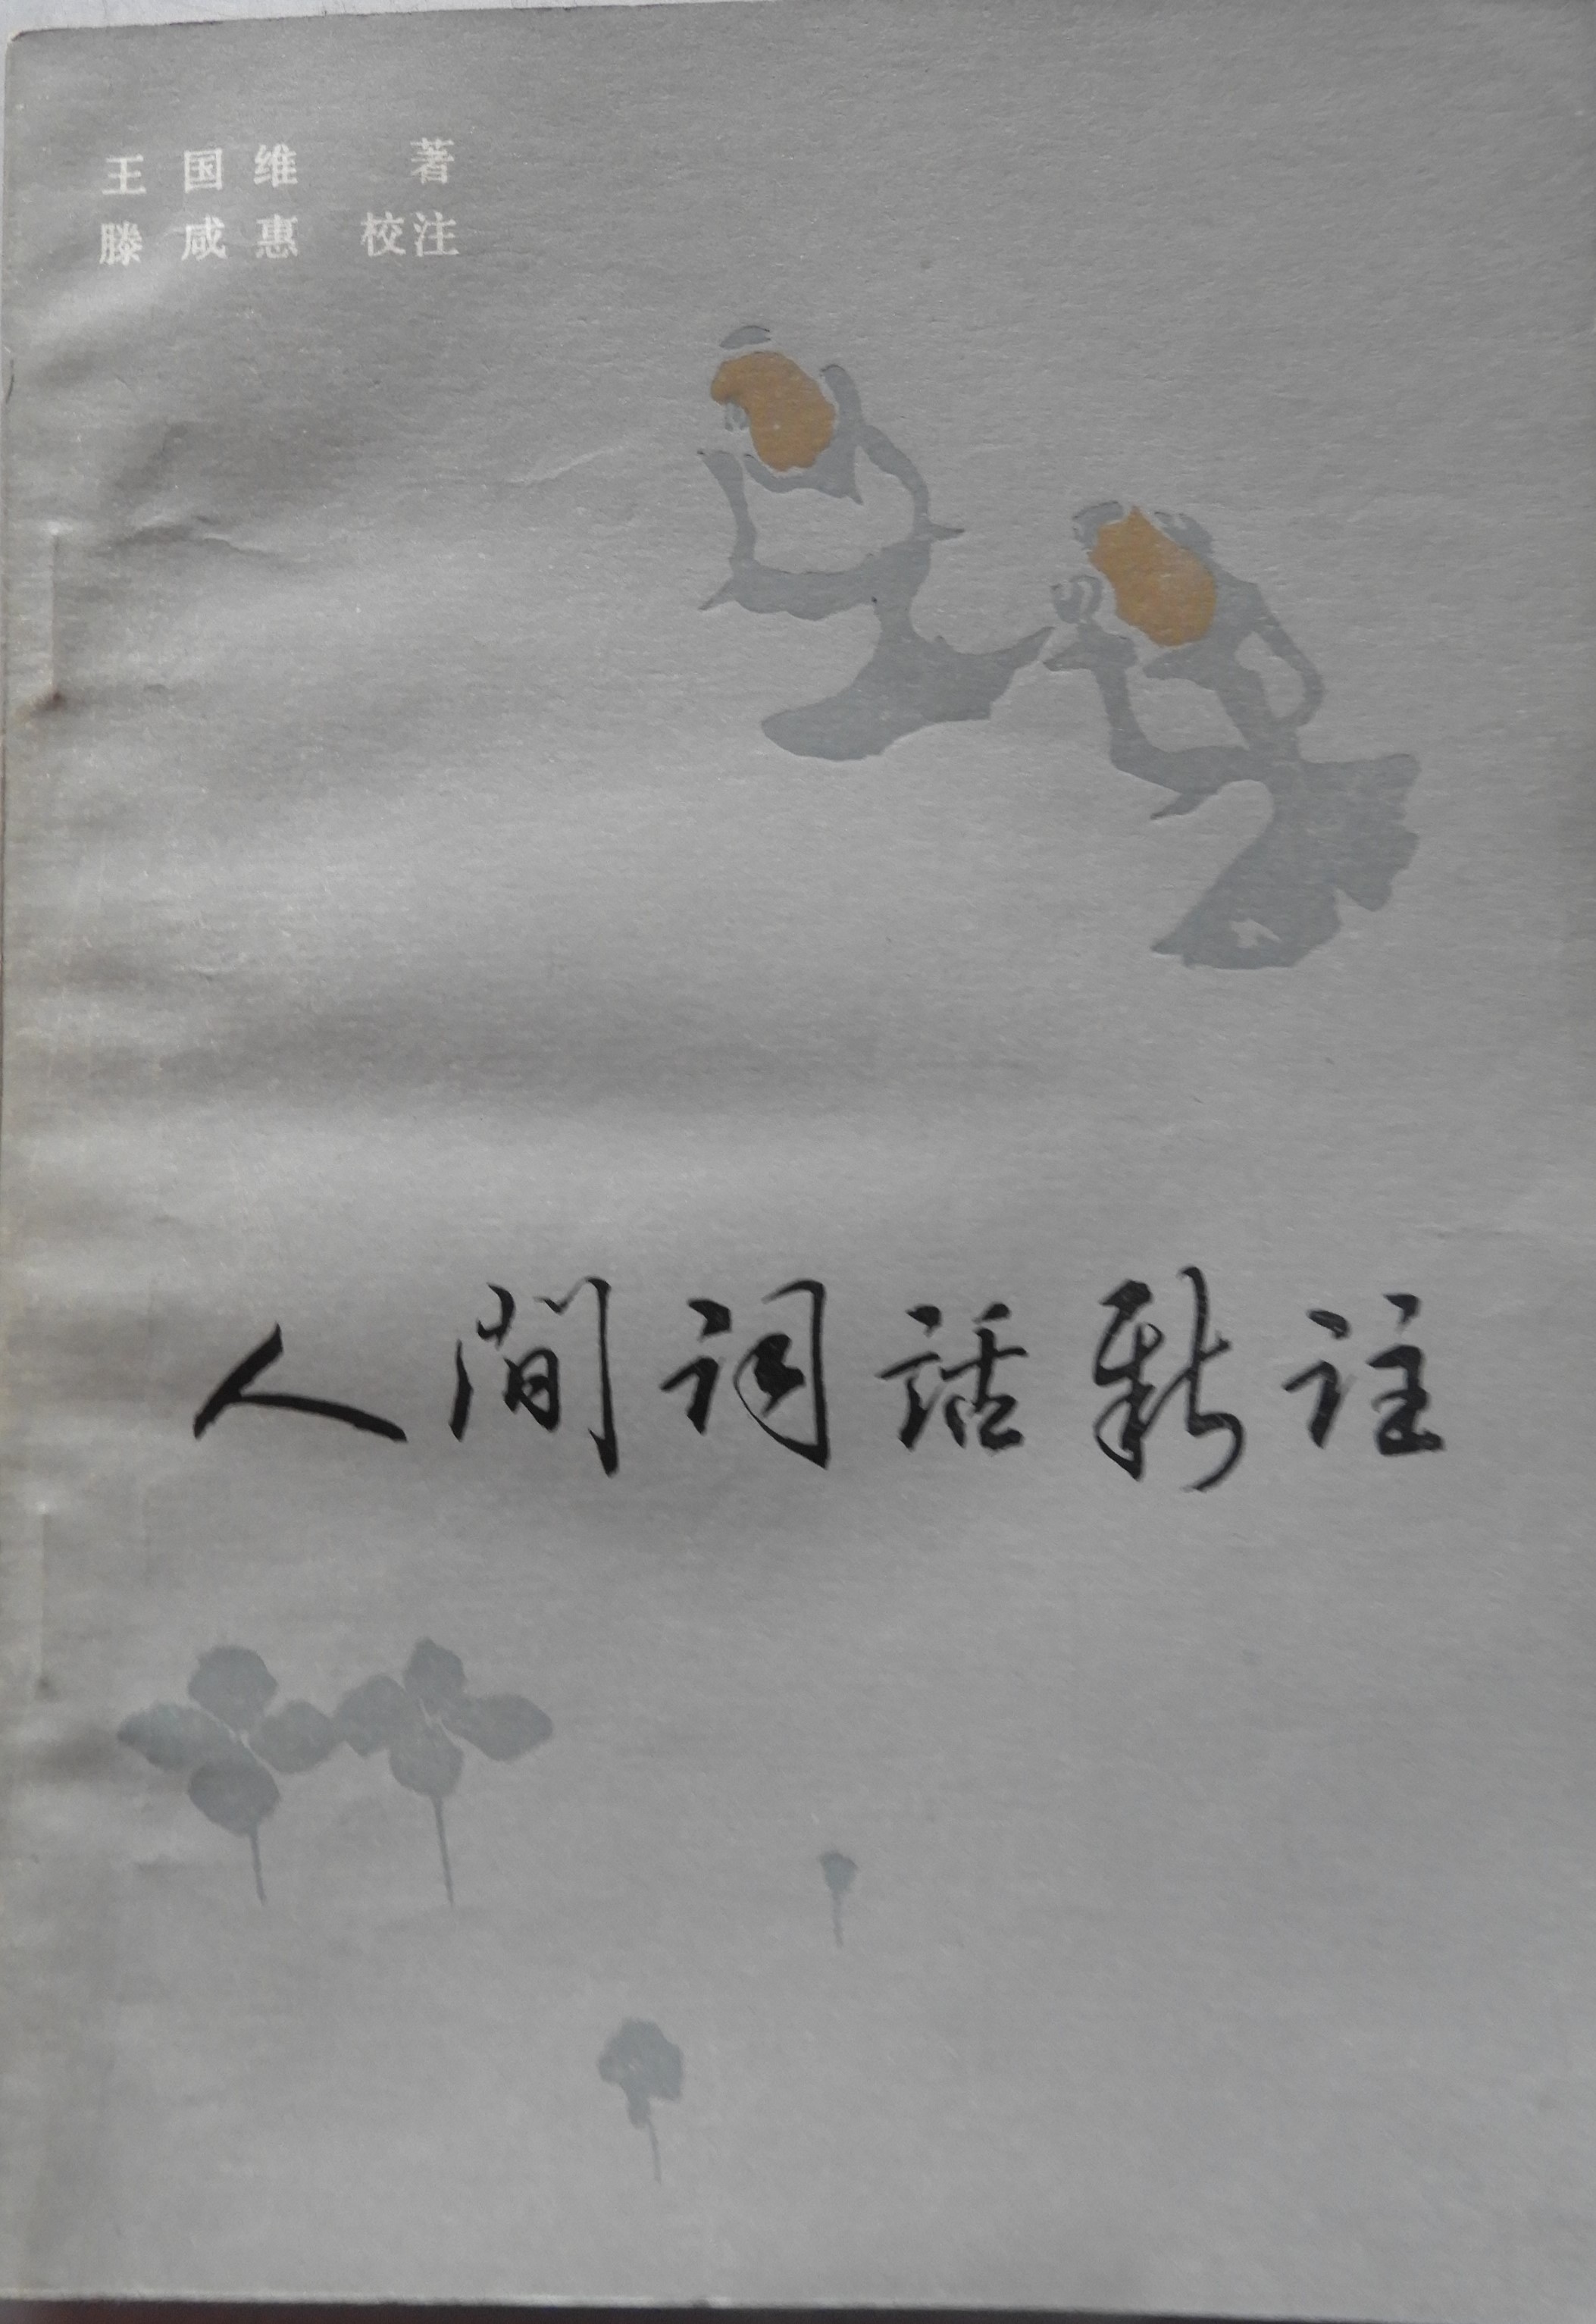 王国维 著
滕咸惠 校注
人间词话新註